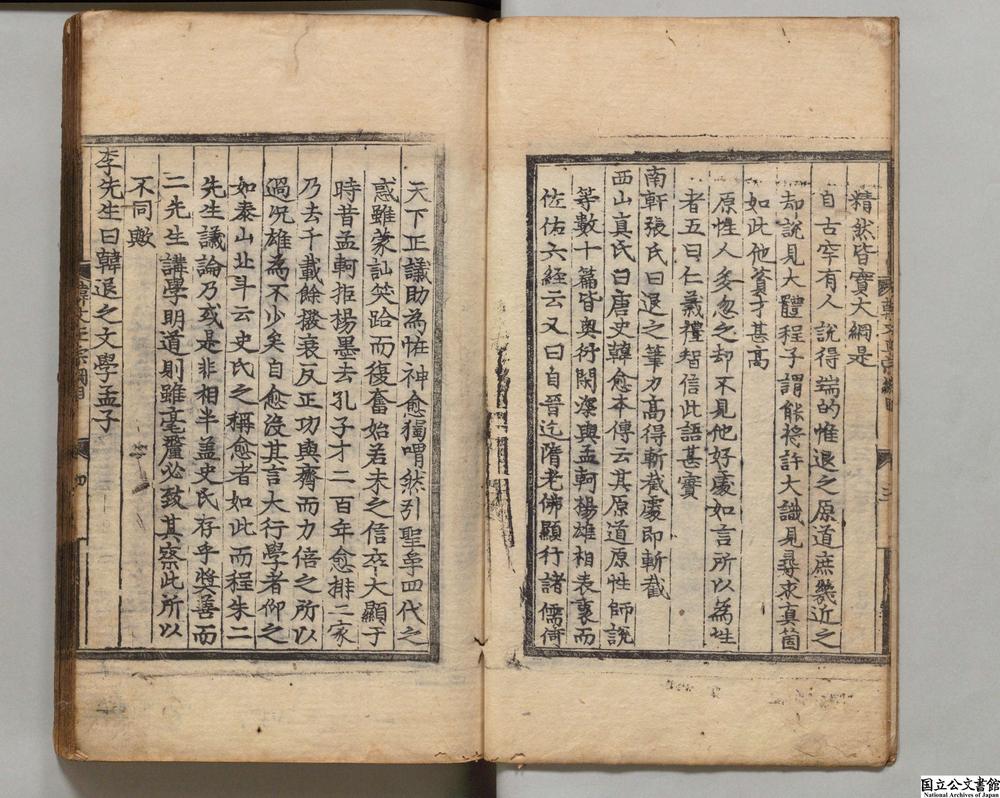 精然皆實大綱是
自古罕有人說得端的惟退之原道庶幾近之
却說見大體程子謂能將許大識見尋求真箇
如此他資才甚高
原性人多忽之却不見他好處如言所以為性
者五曰仁義禮智信此語甚實
南軒張氏曰退之筆力高得斬截處即斬截
西山真氏曰唐史韓愈本傳云其原道原性師說
等數十篇皆奧衍閎深與孟軻楊雄相表裏而
佐佑六經云又曰自晉迄隋老佛顯行諸儒倚
天下正議助為恠神愈獨喟然引聖爭四代之
惑雖蒙訕笑跲而復奮始若未之信卒大顯于
時昔孟軻拒楊墨去孔子才二百年愈排二家
乃去千載餘撥衰反正功與齊而力倍之所以
過况雄為不少矣自愈沒其言大行學者仰之
如泰山北斗云史氏之稱愈者如此而程朱二
先生議論乃或是非相半盖史氏存乎奬善而
二先生講學明道則雖毫釐必致其察此所以
不同歟
李先生曰韓退之文學孟子
国立公文書館
National Archives of Japan